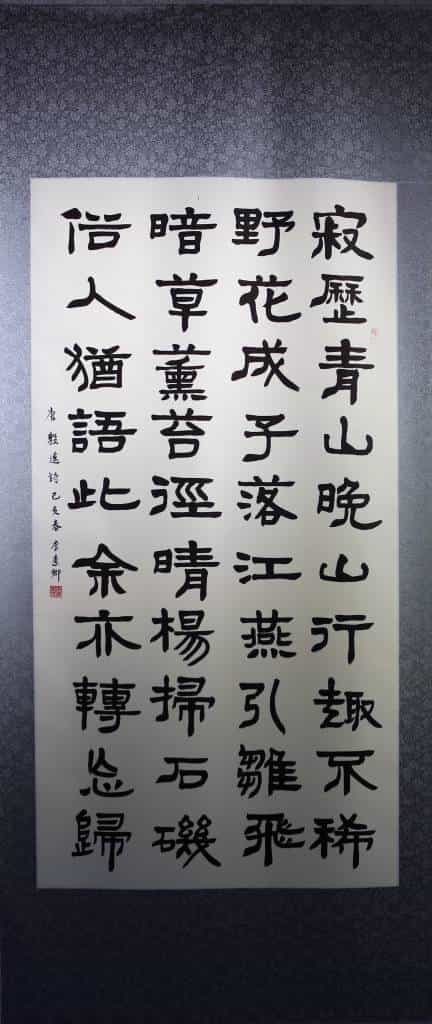 寂歷青山晚山行趣不稀
野花成子落江燕引雛飛
暗草薰苔徑晴楊掃石磯
俗人猶語此余亦轉忘歸
唐 殷遙詩己亥春李